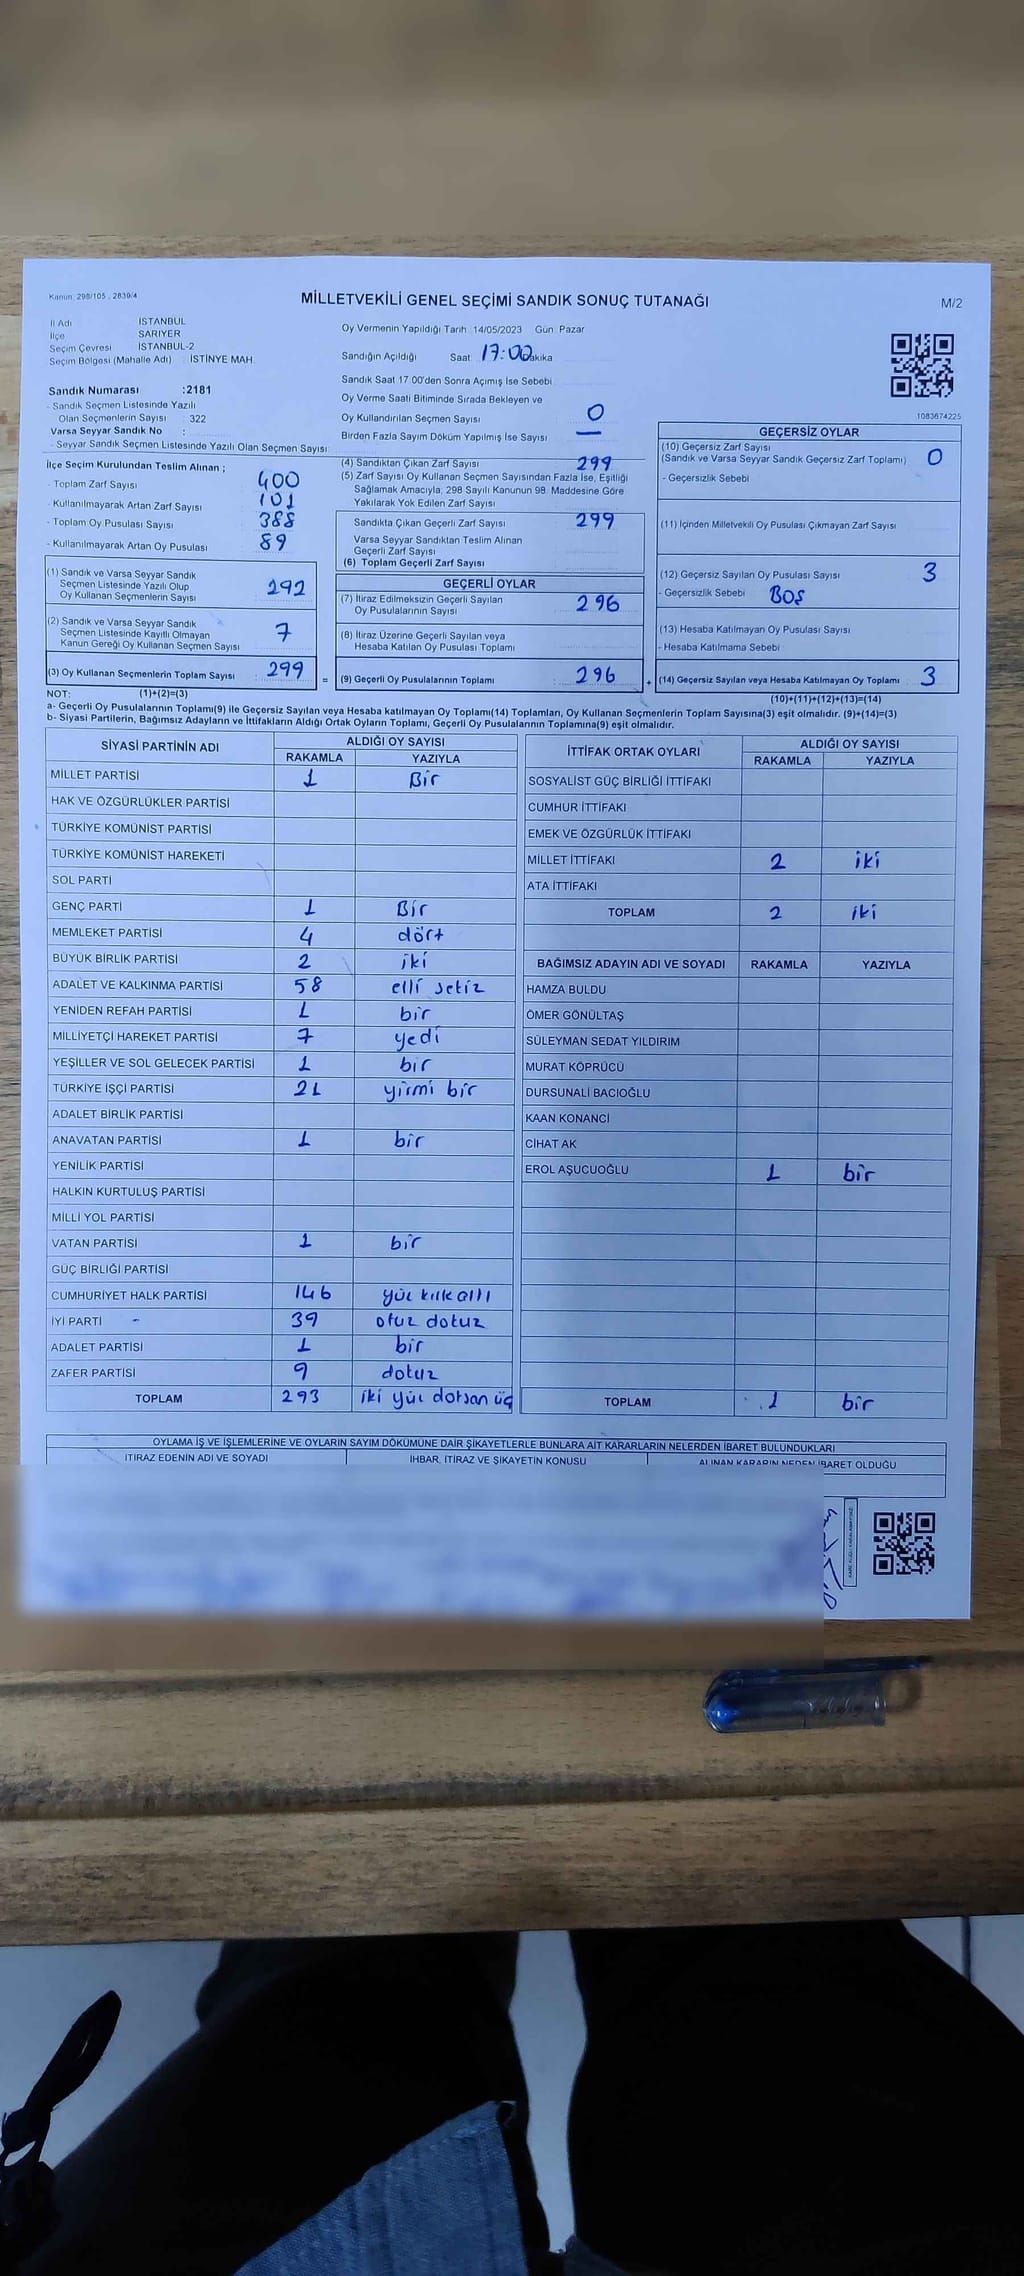 Kanun: 298/105 , 2839/4
MİLLETVEKİLİ GENEL SEÇİMİ SANDIK SONUÇ TUTANAĞI
M/2
İl Adı : İSTANBUL
İlçe : SARIYER
Seçim Çevresi : İSTANBUL-2
Seçim Bölgesi (Mahalle Adı) : İSTİNYE MAH.
Sandık Numarası :2181
- Sandık Seçmen Listesinde Yazılı
Olan Seçmenlerin Sayısı : 322
Varsa Seyyar Sandık No :
- Seyyar Sandık Seçmen Listesinde Yazılı Olan Seçmen Sayısı:
Oy Vermenin Yapıldığı Tarih :14/05/2023 Gün: Pazar
Sandığın Açıldığı Saat: 17:00 Dakika
Sandık Saat 17:00'den Sonra Açımış İse Sebebi :
Oy Verme Saati Bitiminde Sırada Bekleyen ve
Oy Kullandırılan Seçmen Sayısı : 0
Birden Fazla Sayım Döküm Yapılmış İse Sayısı : —
1083674225
İlçe Seçim Kurulundan Teslim Alınan ;
- Toplam Zarf Sayısı : 400
- Kullanılmayarak Artan Zarf Sayısı : 101
- Toplam Oy Pusulası Sayısı : 388
- Kullanılmayarak Artan Oy Pusulası : 89
(1) Sandık ve Varsa Seyyar Sandık
Seçmen Listesinde Yazılı Olup
Oy Kullanan Seçmenlerin Sayısı : 292
(2) Sandık ve Varsa Seyyar Sandık
Seçmen Listesinde Kayıtlı Olmayan
Kanun Gereği Oy Kullanan Seçmen Sayısı : 7
(3) Oy Kullanan Seçmenlerin Toplam Sayısı : 299
(4) Sandıktan Çıkan Zarf Sayısı : 299
(5) Zarf Sayısı Oy Kullanan Seçmen Sayısından Fazla İse, Eşitliği
Sağlamak Amacıyla, 298 Sayılı Kanunun 98. Maddesine Göre
Yakılarak Yok Edilen Zarf Sayısı :
Sandıkta Çıkan Geçerli Zarf Sayısı : 299
Varsa Seyyar Sandıktan Teslim Alınan
Geçerli Zarf Sayısı :
(6) Toplam Geçerli Zarf Sayısı :
GEÇERLİ OYLAR
(7) İtiraz Edilmeksizin Geçerli Sayılan
Oy Pusulalarının Sayısı : 296
(8) İtiraz Üzerine Geçerli Sayılan veya
Hesaba Katılan Oy Pusulası Toplamı :
= (9) Geçerli Oy Pusulalarının Toplamı : 296
GEÇERSİZ OYLAR
(10) Geçersiz Zarf Sayısı
(Sandık ve Varsa Seyyar Sandık Geçersiz Zarf Toplamı) : 0
- Geçersizlik Sebebi :
(11) İçinden Milletvekili Oy Pusulası Çıkmayan Zarf Sayısı :
(12) Geçersiz Sayılan Oy Pusulası Sayısı : 3
- Geçersizlik Sebebi : BOŞ
(13) Hesaba Katılmayan Oy Pusulası Sayısı :
- Hesaba Katılmama Sebebi :
+ (14) Geçersiz Sayılan veya Hesaba Katılmayan Oy Toplamı : 3
NOT: (1)+(2)=(3) (10)+(11)+(12)+(13)=(14)
a- Geçerli Oy Pusulalarının Toplamı(9) ile Geçersiz Sayılan veya Hesaba katılmayan Oy Toplamı(14) Toplamları, Oy Kullanan Seçmenlerin Toplam Sayısına(3) eşit olmalıdır. (9)+(14)=(3)
b- Siyasi Partilerin, Bağımsız Adayların ve İttifakların Aldığı Ortak Oyların Toplamı, Geçerli Oy Pusulalarının Toplamına(9) eşit olmalıdır.
SİYASİ PARTİNİN ADI ALDIĞI OY SAYISI
RAKAMLA YAZIYLA
MİLLET PARTİSİ 1 Bir
HAK VE ÖZGÜRLÜKLER PARTİSİ
TÜRKİYE KOMÜNİST PARTİSİ
TÜRKİYE KOMÜNİST HAREKETİ
SOL PARTİ
GENÇ PARTİ 1 Bir
MEMLEKET PARTİSİ 4 dört
BÜYÜK BİRLİK PARTİSİ 2 iki
ADALET VE KALKINMA PARTİSİ 58 elli sekiz
YENİDEN REFAH PARTİSİ 1 bir
MİLLİYETÇİ HAREKET PARTİSİ 7 yedi
YEŞİLLER VE SOL GELECEK PARTİSİ 1 bir
TÜRKİYE İŞÇİ PARTİSİ 21 yirmi bir
ADALET BİRLİK PARTİSİ
ANAVATAN PARTİSİ 1 bir
YENİLİK PARTİSİ
HALKIN KURTULUŞ PARTİSİ
MİLLİ YOL PARTİSİ
VATAN PARTİSİ 1 bir
GÜÇ BİRLİĞİ PARTİSİ
CUMHURİYET HALK PARTİSİ 146 yüz kırk altı
İYİ PARTİ 39 otuz dokuz
ADALET PARTİSİ 1 bir
ZAFER PARTİSİ 9 dokuz
TOPLAM 293 iki yüz doksan üç
İTTİFAK ORTAK OYLARI ALDIĞI OY SAYISI
RAKAMLA YAZIYLA
SOSYALİST GÜÇ BİRLİĞİ İTTİFAKI
CUMHUR İTTİFAKI
EMEK VE ÖZGÜRLÜK İTTİFAKI
MİLLET İTTİFAKI 2 iki
ATA İTTİFAKI
TOPLAM 2 iki
BAĞIMSIZ ADAYIN ADI VE SOYADI RAKAMLA YAZIYLA
HAMZA BULDU
ÖMER GÖNÜLTAŞ
SÜLEYMAN SEDAT YILDIRIM
MURAT KÖPRÜCÜ
DURSUNALİ BACIOĞLU
KAAN KONANCİ
CİHAT AK
EROL AŞUCUOĞLU 1 bir
TOPLAM 1 bir
OYLAMA İŞ VE İŞLEMLERİNE VE OYLARIN SAYIM DÖKÜMÜNE DAİR ŞİKAYETLERLE BUNLARA AİT KARARLARIN NELERDEN İBARET BULUNDUKLARI
İTİRAZ EDENİN ADI VE SOYADI İHBAR, İTİRAZ VE ŞİKAYETİN KONUSU ALINAN KARARIN NEDEN İBARET OLDUĞU